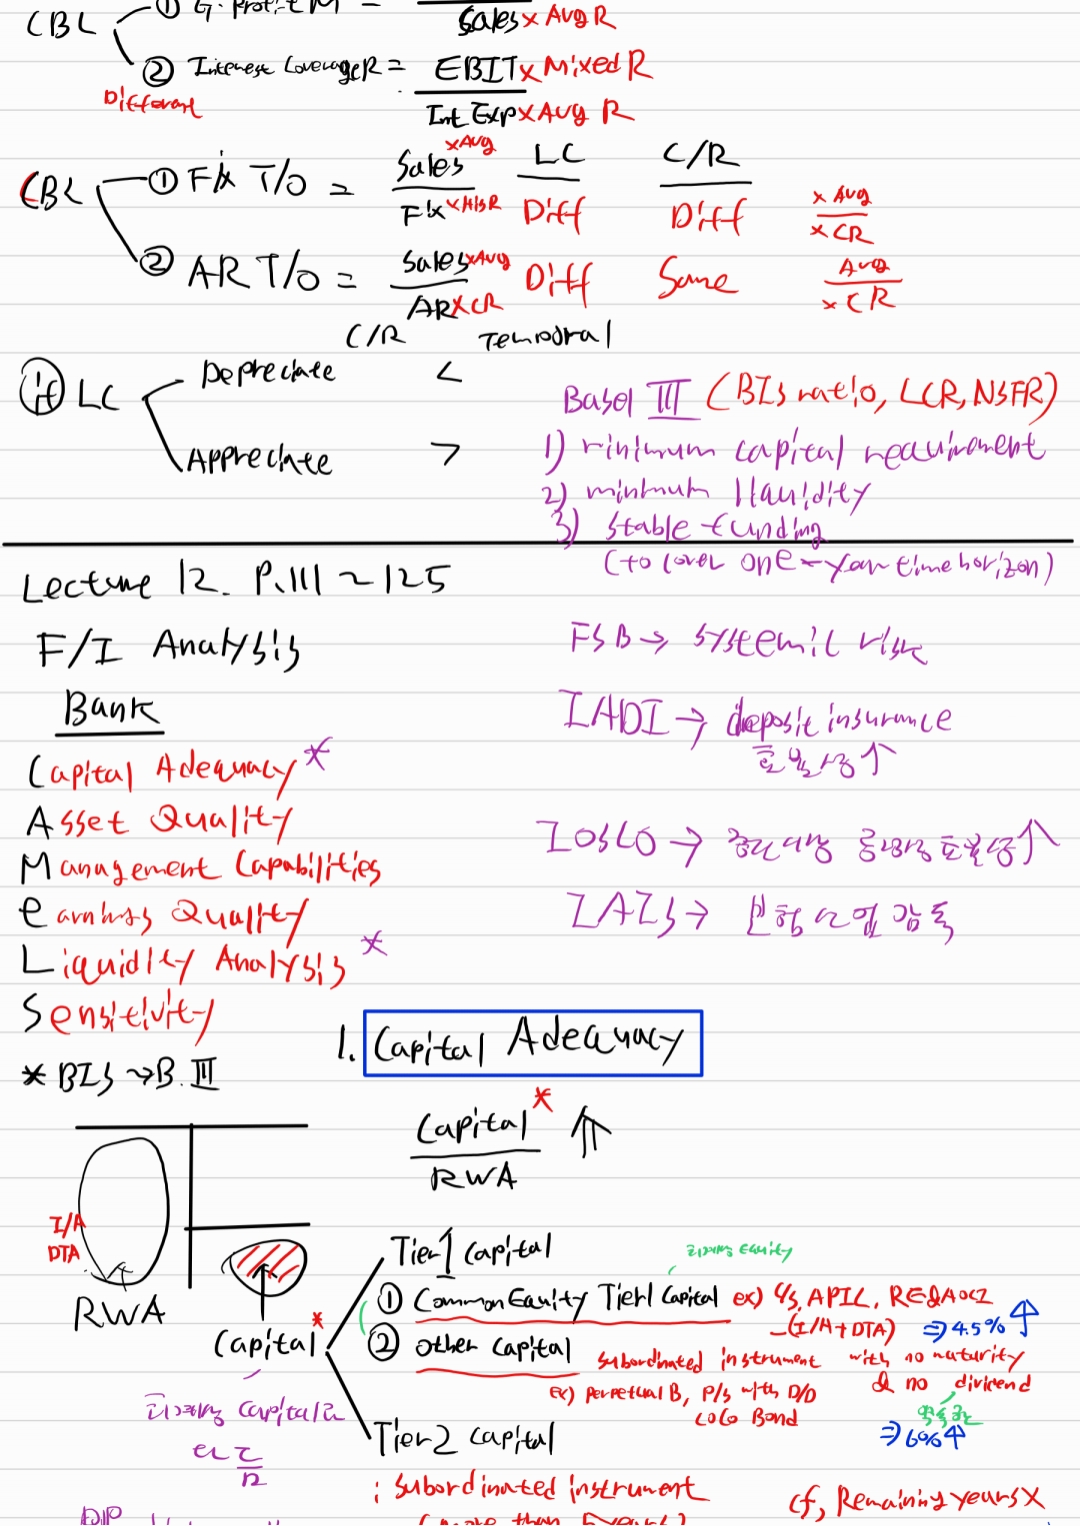 CBL ① G. Profit M =
Sales × Avg R
② Interest Coverage R = EBIT × Mixed R
Different
Int Exp × Avg R
CBL ① Fix T/O = Sales × Avg LC C/R
Fix × His R Diff Diff × Avg
× CR
② AR T/O = Sales × Avg Diff Same Avg
AR × CR × CR
C/R Temporal
if LC Depreciate <
Appreciate >
Basel III (BIS ratio, LCR, NSFR)
1) minimum capital requirement
2) minimum liquidity
3) stable funding
(to cover one-year time horizon)
Lecture 12. P.111 ~ 125
F/I Analysis
Bank
Capital Adequacy *
Asset Quality
Management Capabilities
Earnings Quality
Liquidity Analysis *
Sensitivity
* BIS → B.III
FSB → systemic risk
IADI → deposit insurance
효율성 ↑
IOSCO → 효율성 ↑
IAIS → 보험 산업 감독
1. Capital Adequacy
Capital * ⇑
RWA
I/A
DTA
RWA
Capital *
Capital
Tier 1 Capital
Equity
① Common Equity Tier 1 Capital ex) C/S, APIC, RE & AOCI
-(I/A + DTA) ⇒ 4.5% ↑
② Other Capital subordinated instrument with no maturity
& no dividend
ex) perpetual B, P/S with D/D
CoCo Bond
⇒ 6% ↑
Tier 2 Capital
: subordinated instrument
(more than 5 years)
cf, Remaining years X